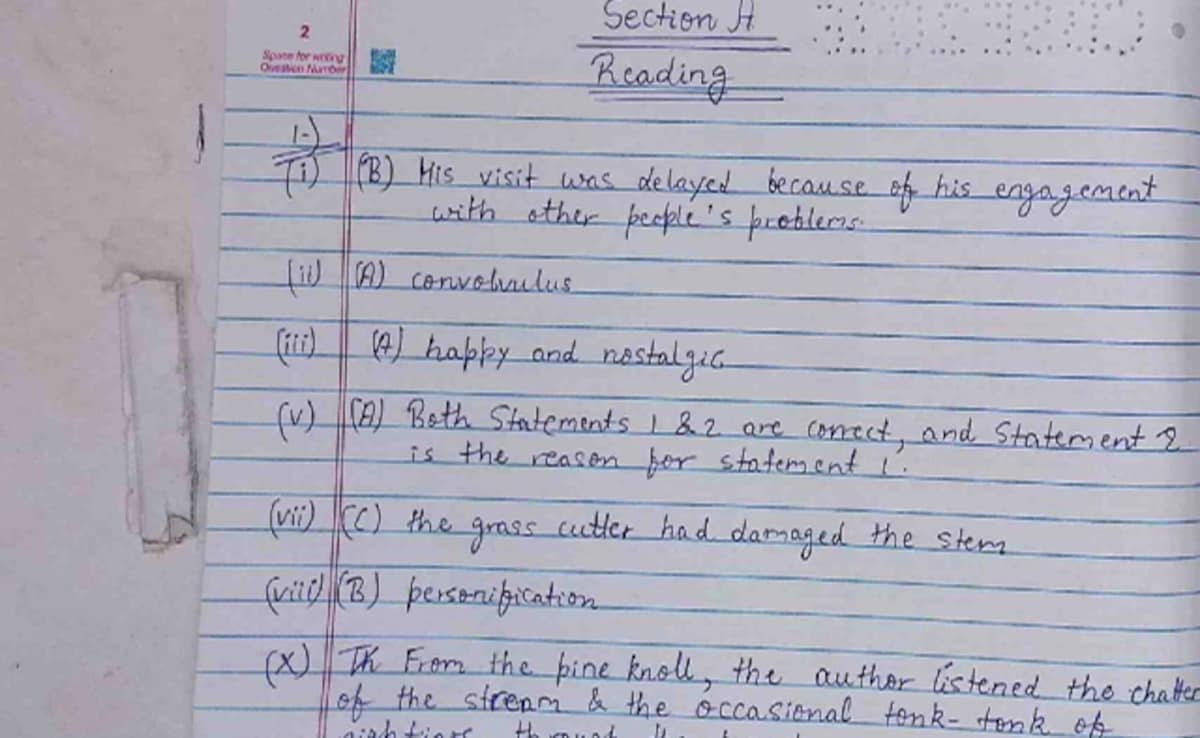 Section A
2
Space for writing
Question Number
Reading
1-)
(i) (B) His visit was delayed because of his engagement
with other people's problems.
(ii) (A) convolvulus
(iii) (A) happy and nostalgic
(v) (A) Both Statements 1 & 2 are correct, and Statement 2
is the reason for statement 1.
(vii) (C) the grass cutter had damaged the stem
(viii) (B) personification
(x) From the pine knoll, the author listened the chatter
of the stream & the occasional tonk-tonk of